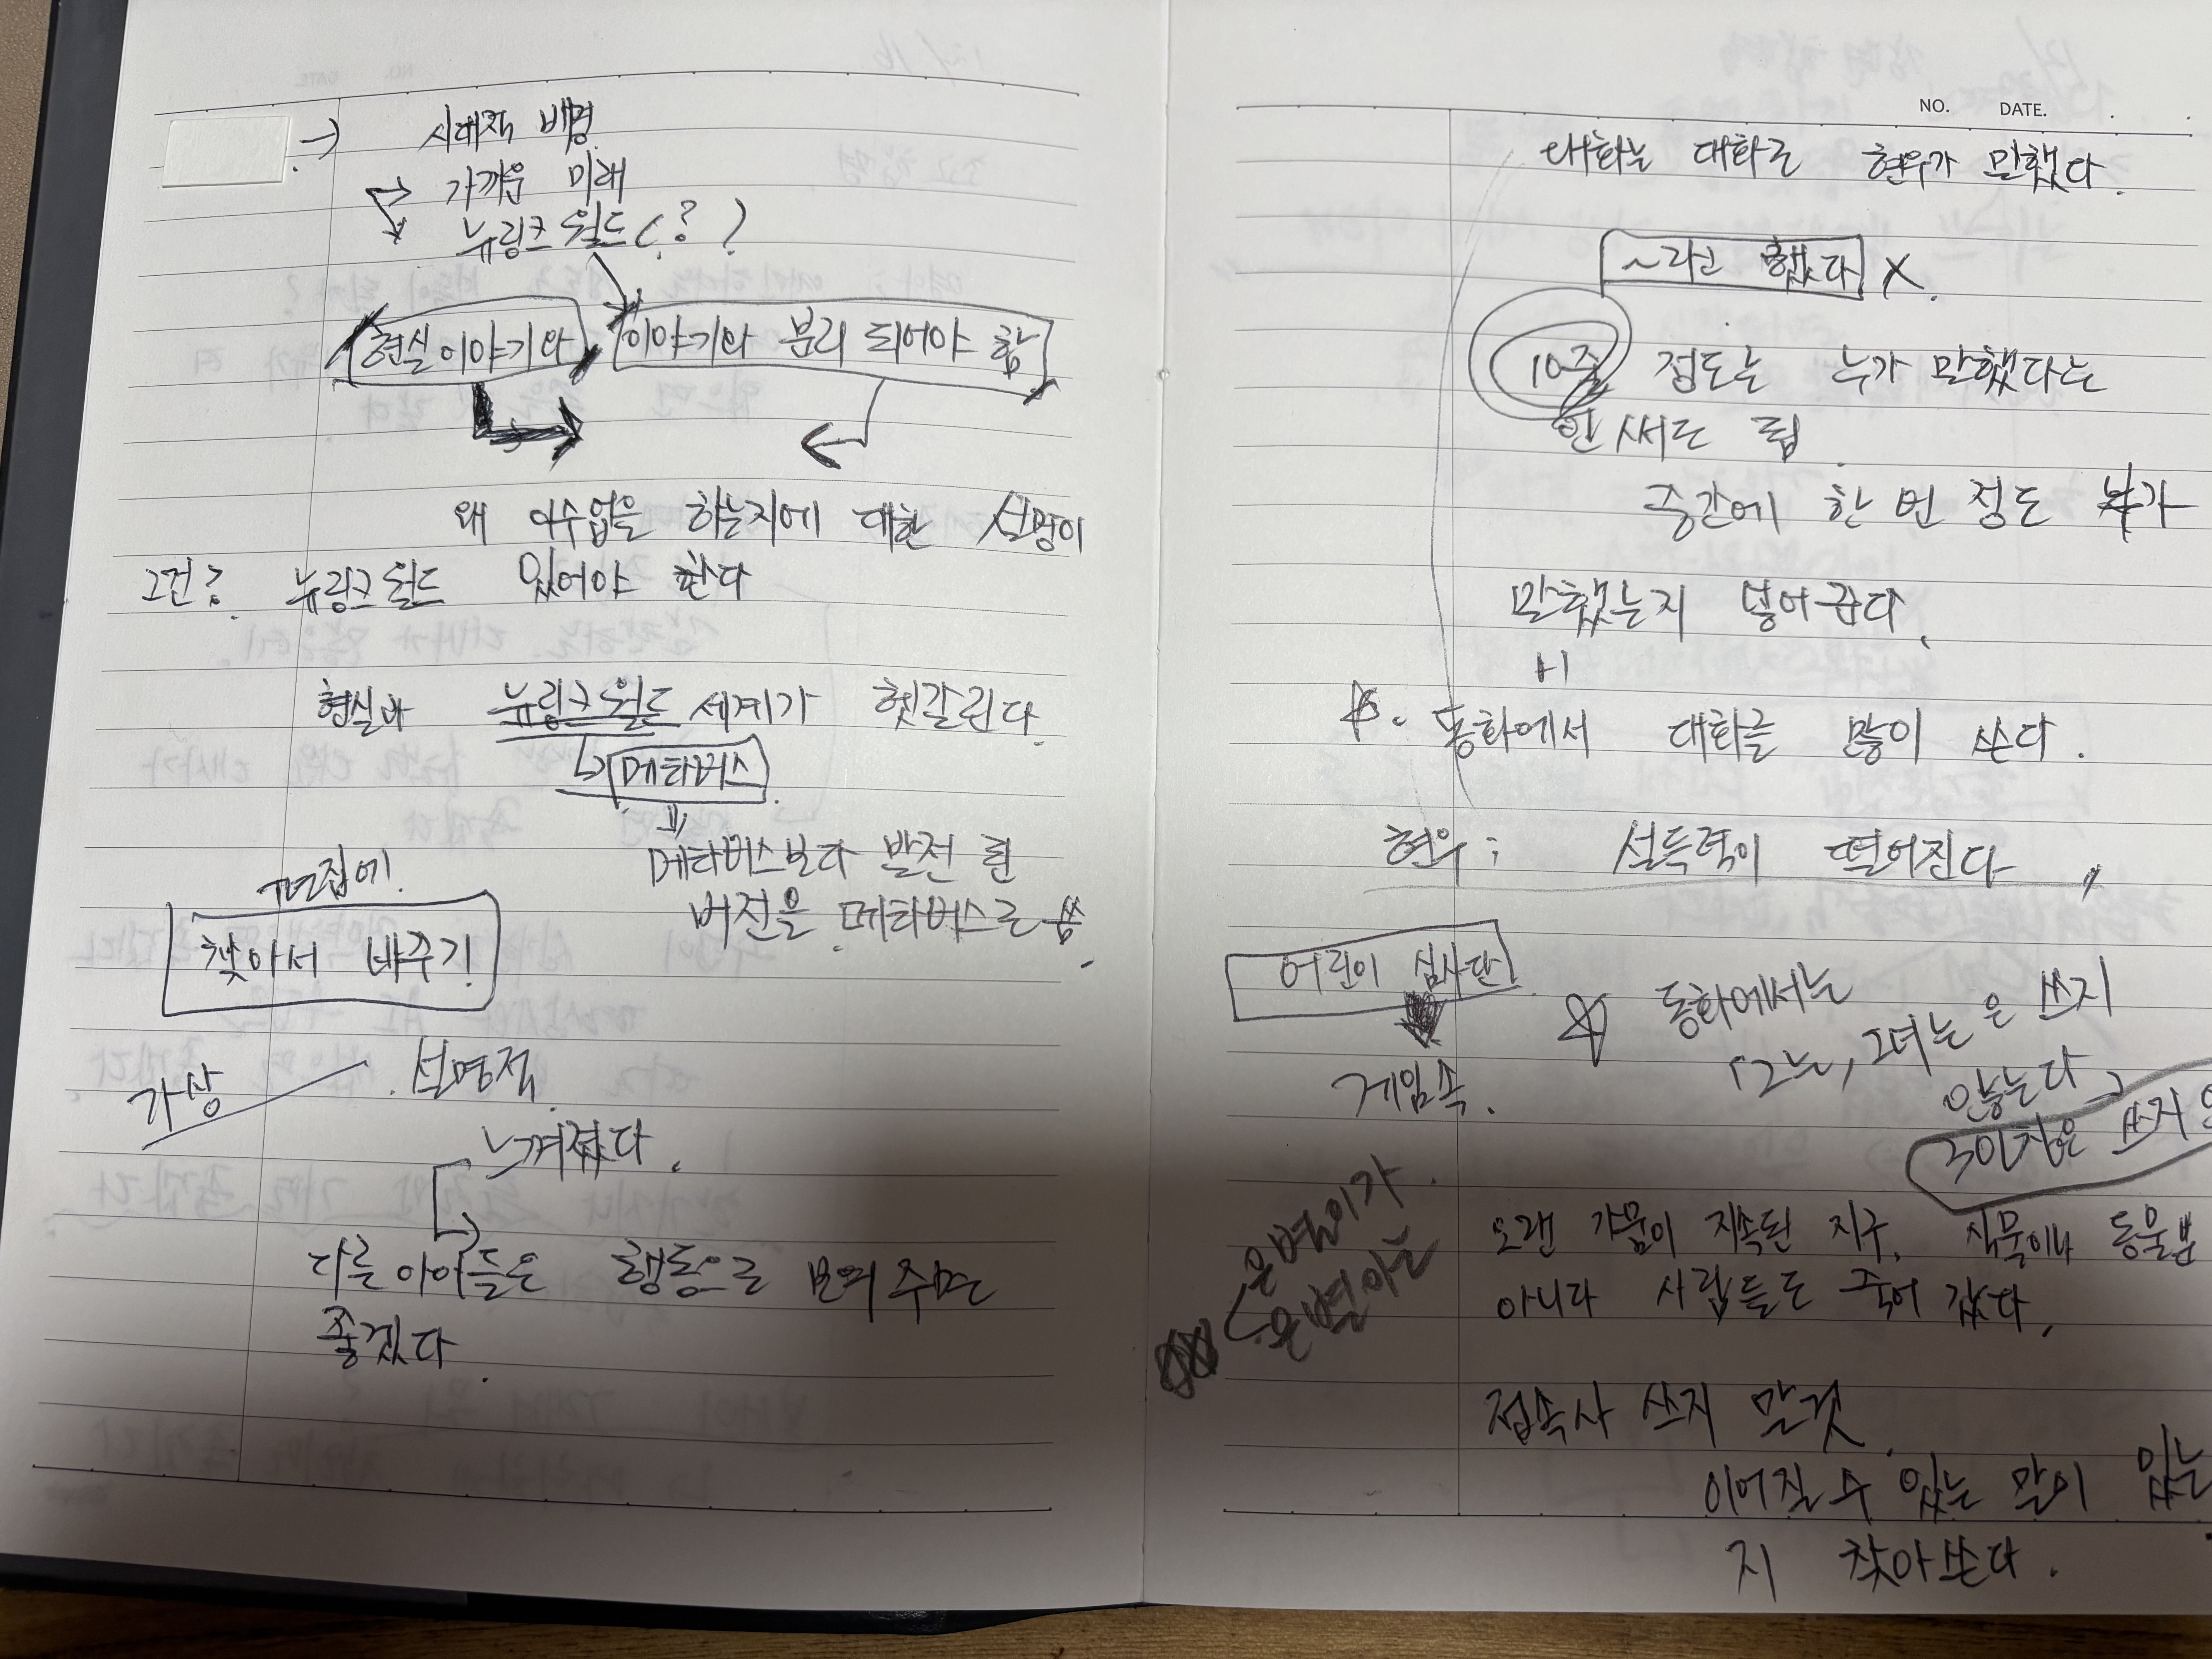 시대적 배경
가까운 미래
뉴링크 월드 (? ?
현실 이야기와 이야기와 분리 되어야 함
왜 이 수업을 하는지에 대한 설명이
그건? 뉴링크 월드 있어야 한다
현실과 뉴링크 월드 세계가 헷갈린다.
메타버스
메타버스보다 발전 된
버전을 메타버스로 씀.
편집에
찾아서 바꾸기!
가상 설명적
느껴졌다.
다른 아이들은 행동으로 보여 주면
좋겠다.
NO. DATE.
대화는 대화로 현우가 말했다.
~라고 했다 X.
10줄 정도는 누가 말했다는
안 써도 됨.
중간에 한 번 정도 누가
말했는지 넣어준다.
동화에서 대화를 많이 쓴다.
현우; 설득력이 떨어진다,
어린이 심사단
게임 속.
동화에서는
그는, 그녀는 은 쓰지
않는다
3인칭은 쓰지
은별이가.
은별이는
오랜 가뭄이 지속된 지구. 식물이나 동물뿐
아니라 사람들도 죽어 갔다.
접속사 쓰지 말것.
이어질 수 있는 말이 있는
지 찾아쓴다.